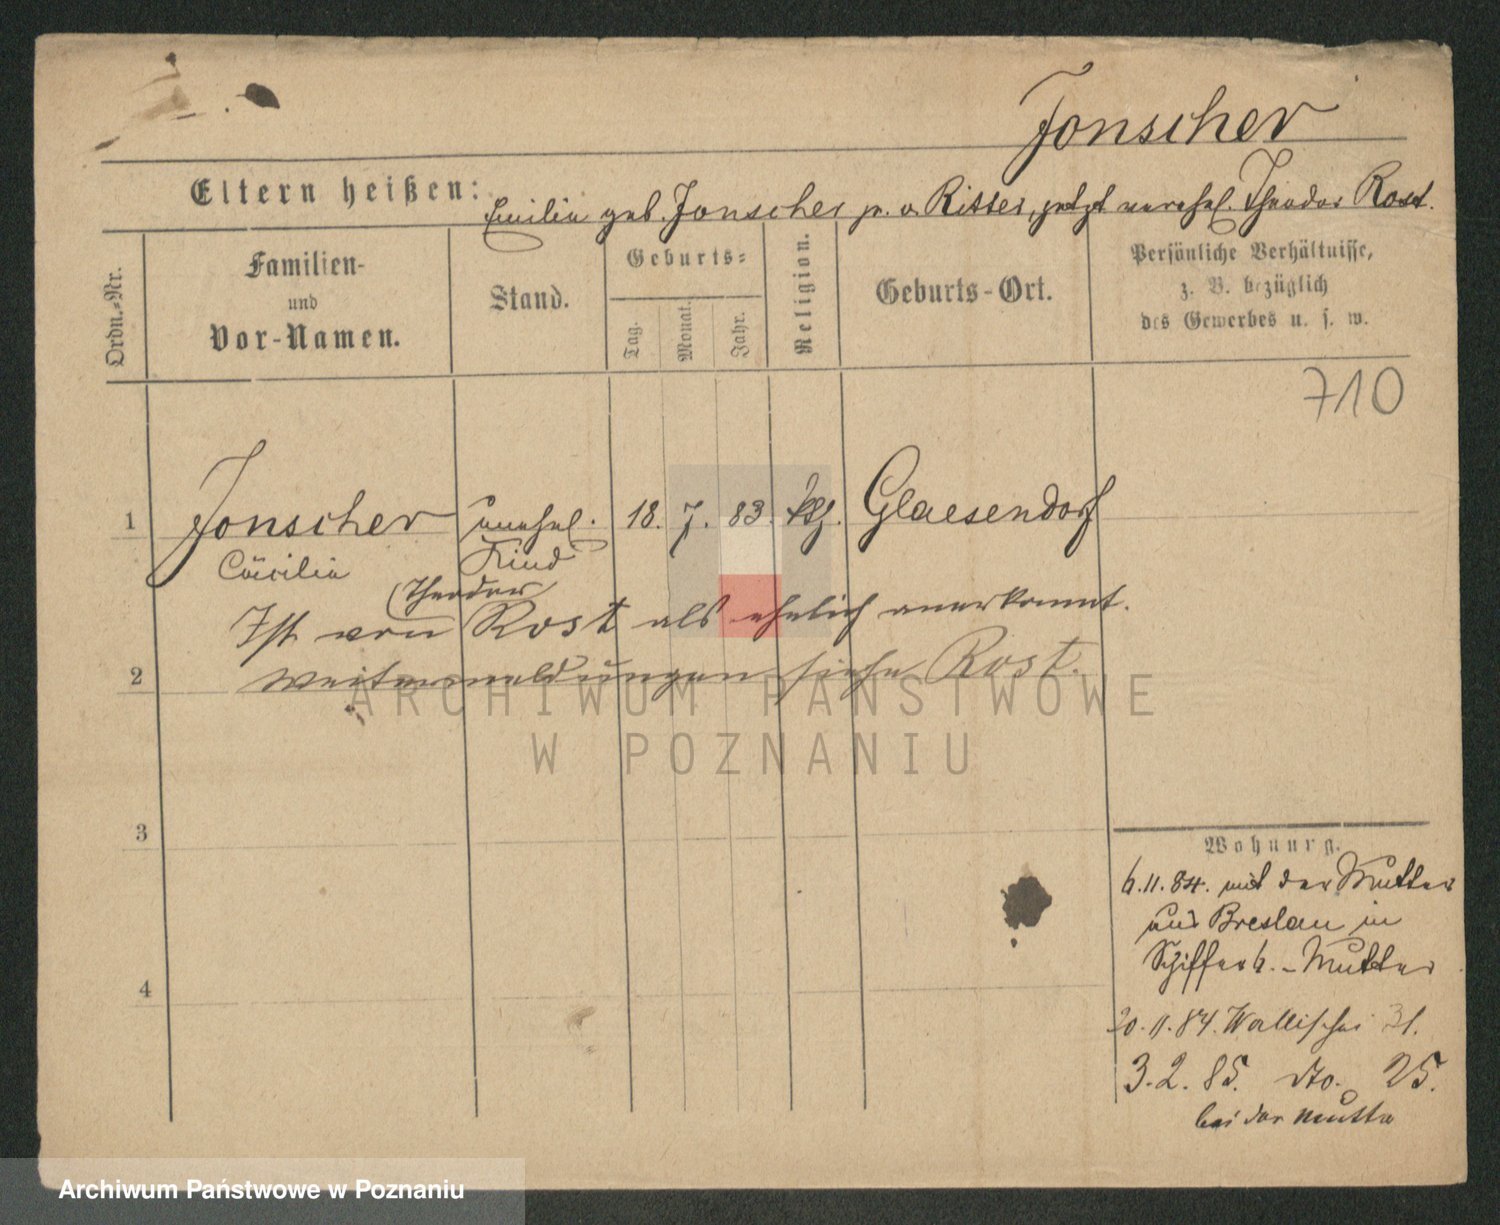 Jonscher
Eltern heißen: Emilie geb. Jonscher, jetzt verehel. Theodor Rost.
Ordn.-Nr.
Familien-
und
Vor-Namen.
Stand.
Geburts-
Tag.
Monat.
Jahr.
Religion.
Geburts-Ort.
Persönliche Verhältnisse,
z. B. bezüglich
des Gewerbes u. s. w.
710
1 Jonscher unehel. 18. 7. 83. Glaesendorf
Cäcilie Kind
Theodor
Ist von Rost als ehelich anerkannt.
2 Weitermeldungen siehe Rost.
3
4
Wohnung.
6.11.84. mit der Mutter
aus Breslau in
Schifferb. - Mutter
20.11.84. Wallischei 31.
3.2.85. dto. 25.
bei der Mutter
ARCHIWUM PAŃSTWOWE
W POZNANIU
Archiwum Państwowe w Poznaniu